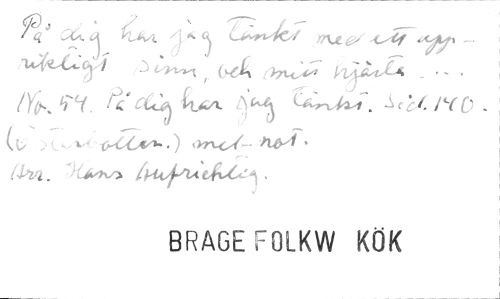 På dig har jag tänkt med ett upp-
riktigt sinn, och mitt hjärta ....
No. 54. På dig har jag tänkt. Sid. 140.
(Österbotten.) met-not.
Arr. Hans Aufrichtig.
BRAGE FOLKW KÖK